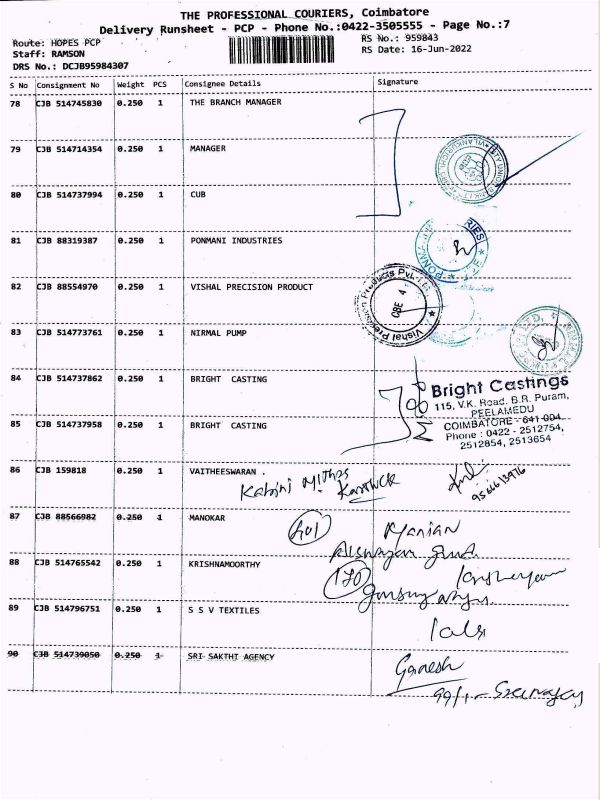 THE PROFESSIONAL COURIERS, Coimbatore
Delivery Runsheet - PCP - Phone No.:0422-3505555 - Page No.:7
Route: HOPES PCP
RS No.: 959843
Staff: RAMSON
RS Date: 16-Jun-2022
DRS No.: DCJB95984307
S No Consignment No Weight PCS Consignee Details Signature
78 CJB 514745830 0.250 1 THE BRANCH MANAGER
79 CJB 514714354 0.250 1 MANAGER
80 CJB 514737994 0.250 1 CUB
81 CJB 88319387 0.250 1 PONMANI INDUSTRIES
82 CJB 88554970 0.250 1 VISHAL PRECISION PRODUCT
Vishal Precision Products Pvt. Ltd.
CBE 4
83 CJB 514773761 0.250 1 NIRMAL PUMP
84 CJB 514737862 0.250 1 BRIGHT CASTING
Bright Castings
115, V.K. Road, B.R. Puram,
PEELAMEDU
COIMBATORE - 641 004.
Phone : 0422 - 2512754,
2512854, 2513654
85 CJB 514737958 0.250 1 BRIGHT CASTING
86 CJB 159818 0.250 1 VAITHEESWARAN .
Kabini Mithas
Karthick
87 CJB 88566982 0.250 1 MANOKAR
401
88 CJB 514765542 0.250 1 KRISHNAMOORTHY
170
89 CJB 514796751 0.250 1 S S V TEXTILES
90 CJB 514739050 0.250 1 SRI SAKTHI AGENCY
Ganesh